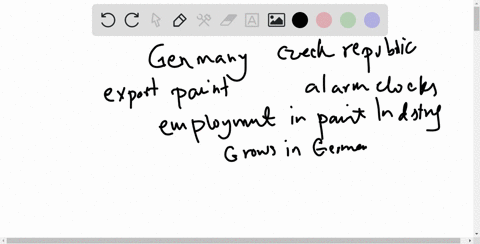 Germany Czech republic
export paint alarm clocks
employment in paint Indstry
Grows in German